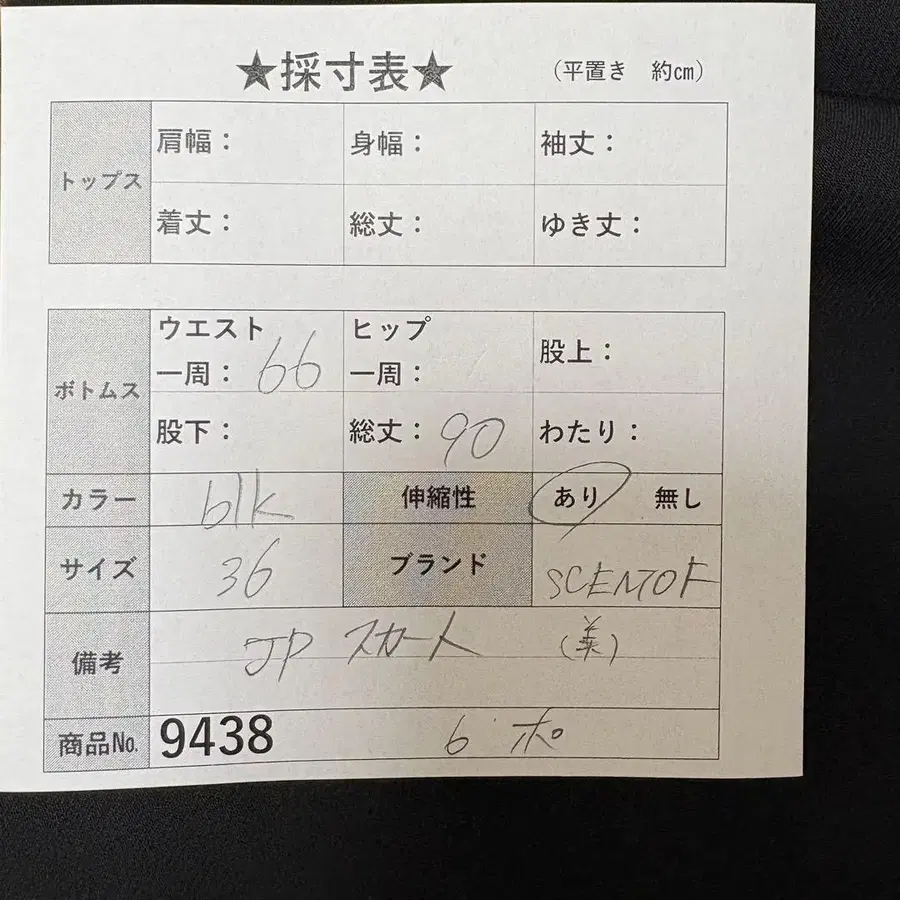 ★採寸表★ (平置き 約㎝)
トップス 肩幅： 身幅： 袖丈：
着丈： 総丈： ゆき丈：
ボトムス ウエスト一周： 66 ヒップ一周： 股上：
股下： 総丈： 90 わたり：
カラー blk 伸縮性 あり 無し
サイズ 36 ブランド SCENTOF
備考 JP スカート (美)
商品No. 9438 6 ポ